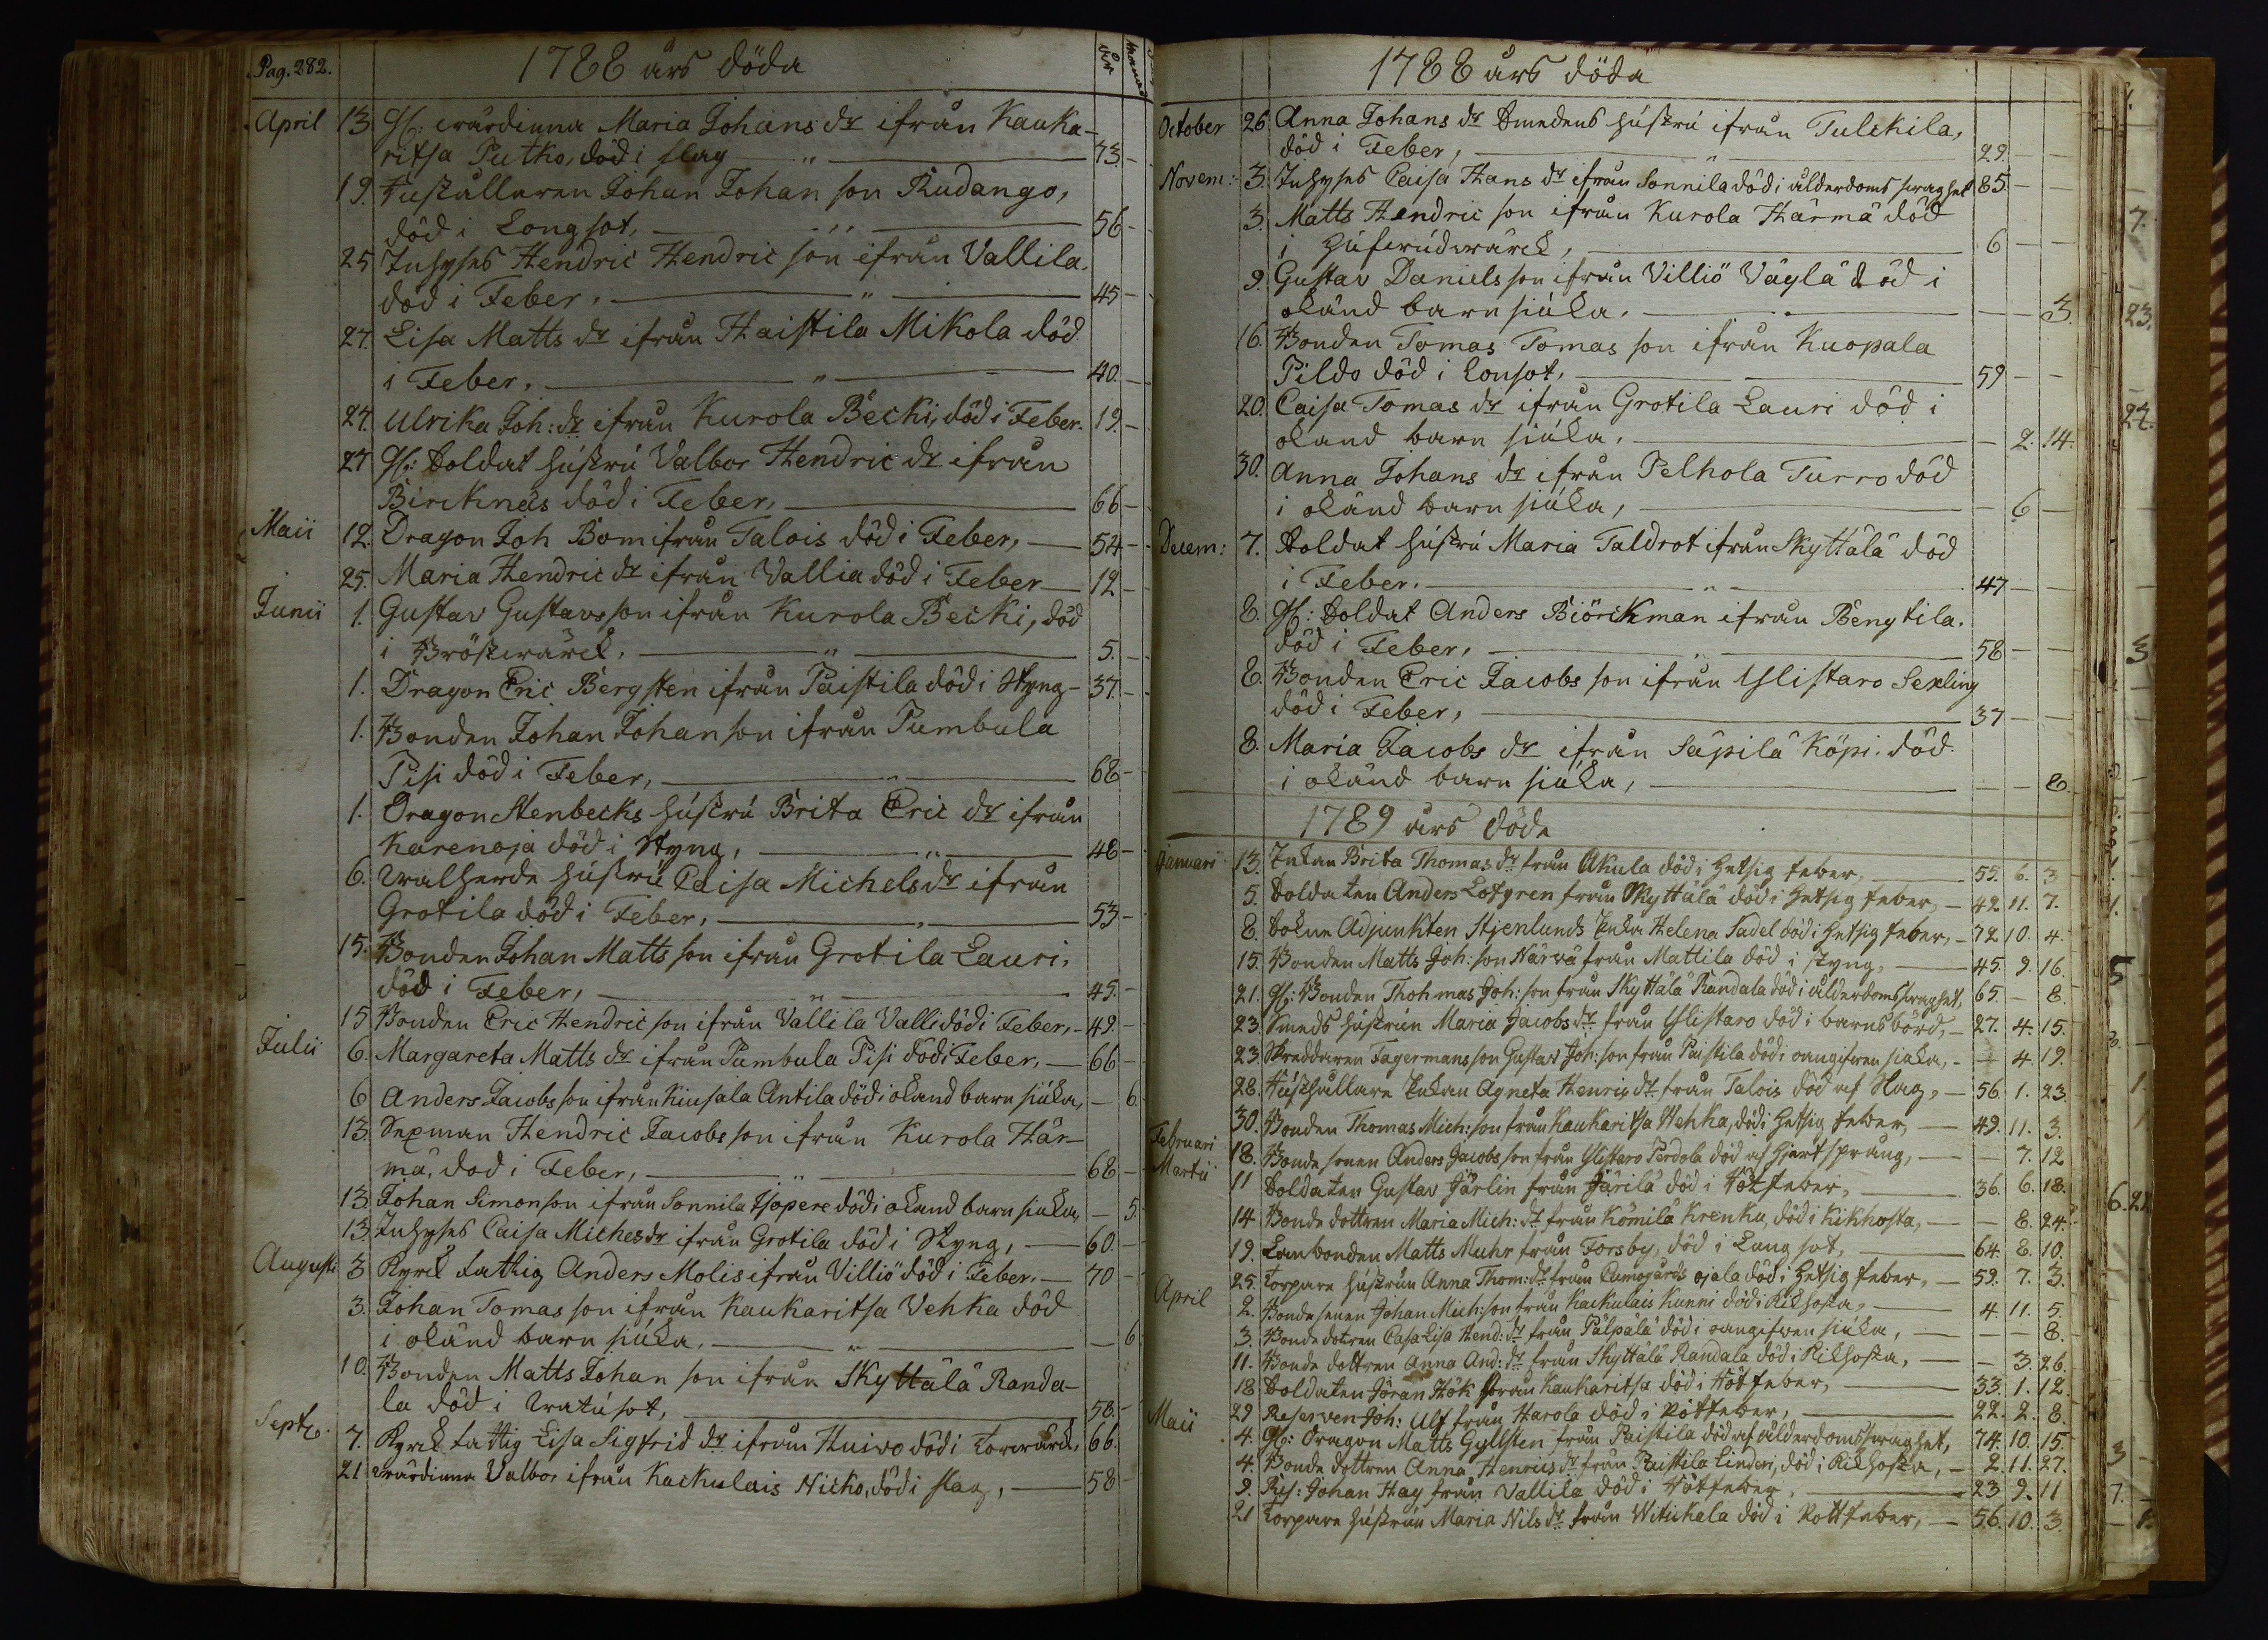 Pag. 282.
1788 års döda
År
Månad
April 13 Gl: wärdinna Maria Johans dr ifrån Kauka-
ritsa Putko, död i slag 73.
19. Husållaren Johan Johan son Rudango,
död i Longsot, 56
25 Inhyses Hendric Hendric son ifrån Vallila.
död i Feber. 45
27. Lisa Matts dr ifrån Haistila Mikola död
i Feber. 40.
27. Ulrika Joh: dr ifrån Kurola Becki, död i Feber. 19.
27 Gl: Soldat hústrú Valbor Hendric dr ifrån
Bircknäs död i Feber, 66
Maii 12. Dragon Joh Bom ifrån Talois död i Feber, 54
25. Maria Hendric dr ifrån Vallia död i Feber 12
Junii 1. Gustav Gustavsson ifrån Kurola Becki, död
i Bröstwärck. 5.
1. Dragon Eric Bergsten ifrån Paistila död i Styng 37.
1. Bonden Johan Johan son ifrån Pumbula
Pisi död i Feber, 68
1. Dragon Stenbecks hústrú Brita Eric dr ifrån
Karenoja död i Styng, 48
6. Walherde hústrú Caisa Michels dr ifrån
Grotila död i Feber, 53
15. Bonden Johan Matts son ifrån Grotila Lauri,
död i Feber, 45.
15 Bonden Eric Hendric son ifrån Vallila Valli död i Feber, 49.
Julii 6. Margareta Matts dr ifrån Pumbula Pisi död i Feber, 66
6 Anders Jacobs son ifrån Kiusala Antila död i okand barn siúka, — 6.
13. Sexman Hendric Jacobs son ifrån Kurola Här-
mä, dod i Feber, 68
13. Johan Simonson ifrån Sonnila Isopere död i okand barn siuka, — 5.
13. Inhyses Caisa Miches dr ifrån Grotila död i Styng, 60.
Augusti 3 Kyrck fattig Anders Molis ifrån Villiö död i Feber. 70
3. Johan Tomas son ifrån Kaukaritsa Vehka död
i okänd barn siúka. — 6
10. Bonden Matts Johan son ifrån Skyttälä Randa-
la död i Watúsot, 58.
Septr. 7. Kyrck fattig Lisa Sigfrid dr ifrån Huiwo död i Torrwärck. 66.
21 Wärdinna Valbor ifrån Kackulais Nicko, död i slag, 58
1788 års döda
October 26 Anna Johans dr Smedens hústrú ifrån Tulckila,
död i Feber, 29.
Novem: 3. Inhyses Caisa Hans dr ifrån Sonnila död i ålderdoms swaghet 85.
3. Matts Hendric son ifrån Kurola Härmä död
i húfwúdwärck, 6
9. Gustav Daniels son ifrån Villiö Väylä död i
okänd barn siúka. — — 3.
16. Bonden Tomas Tomas son ifrån Kuopala
Pildo död i Lonsot, 59
20. Caisa Tomas dr ifrån Grotila Lauri död i
okand barn siúka, — 2. 14.
30. Anna Johans dr ifrån Pelhola Turro död
i okänd barn siúka, — 6 —
Decem: 7. Soldat hústrú Maria Taldrot ifrån Skyttälä död
i Feber. 47
8. Gl: Soldat Anders Biörckman ifrån Bengtila.
död i Feber, 58
8. Bonden Eric Jacobs son ifrån Ylistaro Sexling
död i Feber, 37
8. Maria Jacobs dr ifrån Säpilä Köpi. död.
i okänd barn siúka, — — 8.
1789 års döda
Januari 13. Enkan Brita Thomas dr från Akula död i hetsig feber, 55. 6. 3
5. Soldaten Anders Lofgren från Skyttälä död i hetsig feber, 42. 11. 7.
8. Sokne Adjunkten Stjenlunds Enka Helena Sadel död i hetsig feber, 72 10. 4.
15. Bonden Matts Joh: son Närvä från Mattila död i styng, 45. 9. 16.
21. Gl: Bonden Thohmas Joh: son från Skyttälä Randala död i ålderdomsswaghet, 65. — 8.
23. Smeds hústrún Maria Jacobs dr från Ylistaro död i barnsbörd, 27. 4. 15.
23 Skreddaren Fagermans son Gustav Joh: son från Paistila död i oangifwen siuka, — 4. 19.
28. Húshållare Enkan Agneta Henris dr från Talois död af Slag, 56. 1. 23
30. Bonden Thomas Mich: son från Kaukaritsa Wehka, död i hetsig feber, 49. 11. 3.
Februari 18. Bonde sonen Anders Jacobs son från Ylistaro Perdola död af hjertsprång, — 7. 12
Martii 11 Soldaten Gustav Järlin från Järilä död i Rötfeber, 36. 6. 18.
14 Bonde dottren Maria Mich: dr från Kömilä Krenku, död i Kikhosta, — 8. 24.
19. Lanbonden Matts Muhr från Forsby, död i Lang sot, 64. 8. 10.
25. Torpare hustrún Anna Thom: dr från Cumogårds ojala död i hetsig feber, 59. 7. 3.
April 2. Bonde sonen Johan Mich: son från Kackulais Kunni död i Kikhosta, 4. 11. 5.
3. Bonde dotren Casa Lisa Hend: dr från Pälpälä död i oangifwen siuka, — — 8.
11. Bonde dottren Anna And: dr från Skyttälä Randala död i Kikhosta, — 3. 26.
18. Soldaten Jöran Hök från Kaukaritsa död i Rötfeber, 33. 1. 12.
29 Reserven Joh: Ulf från Harola död i Rötfeber, 22. 2. 8.
Maii 4. Gl: Dragon Matts Gyllsten från Paistila död af ålderdomsswaghet, 74. 10. 15.
4. Bonde dottren Anna Henrics dr från Paistila Linden, död i Kikhosta, 2. 11. 27.
9. Res: Johan Hag från Vallila död i Rötfeber. 23 9. 11
21 Torpare hústrún Maria Nils dr från Witickala död i Rottfeber, 56. 10. 3.